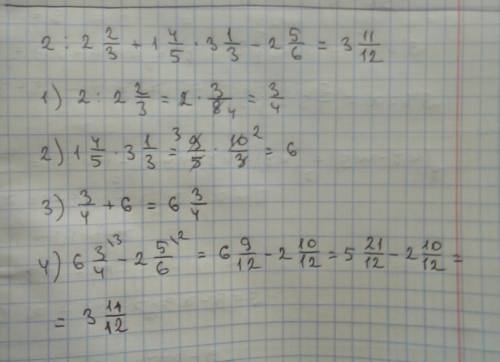 2 : 2 2/3 + 1 4/5 · 3 1/3 - 2 5/6 = 3 11/12
1) 2 : 2 2/3 = 2 · 3/8 4 = 3/4
2) 1 4/5 · 3 1/3 = 3 9/5 · 10 2/3 = 6
3) 3/4 + 6 = 6 3/4
4) 6 3/4 \3 - 2 5/6 \2 = 6 9/12 - 2 10/12 = 5 21/12 - 2 10/12 =
= 3 11/12